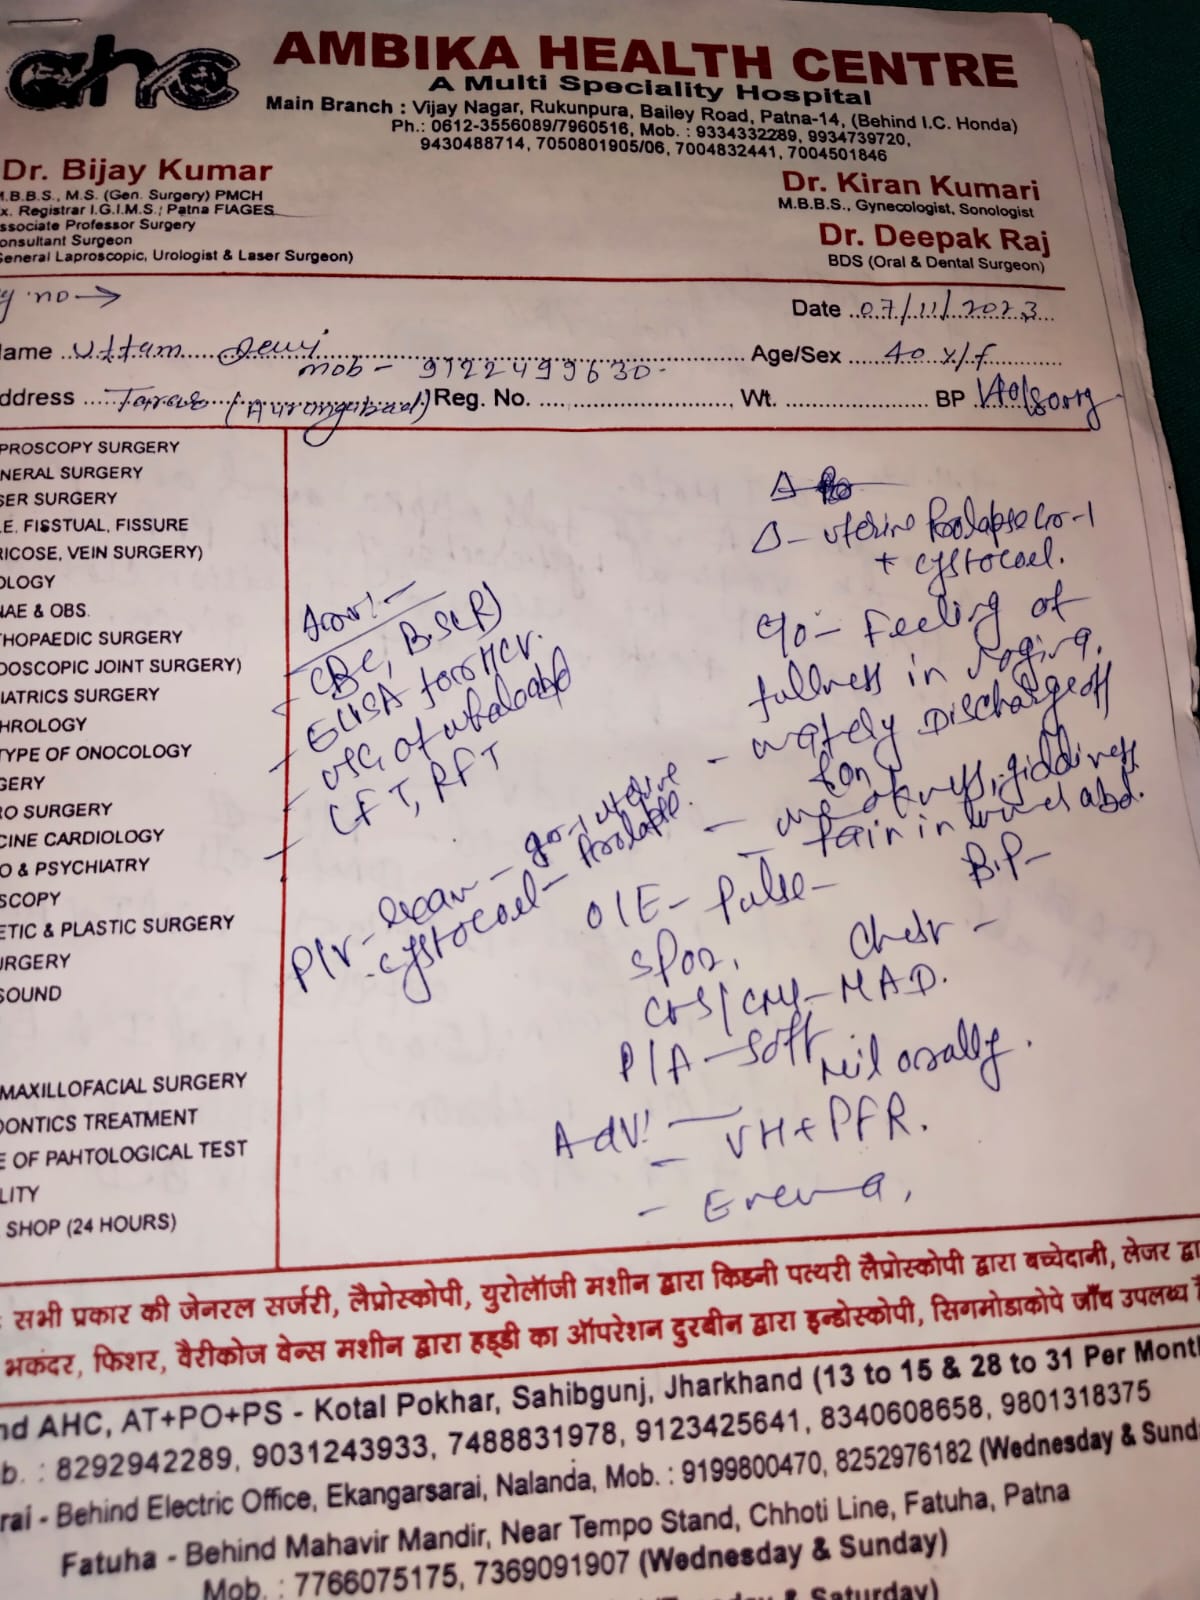 ahc
AMBIKA HEALTH CENTRE
A Multi Speciality Hospital
Main Branch : Vijay Nagar, Rukunpura, Bailey Road, Patna-14, (Behind I.C. Honda)
Ph.: 0612-3556089/7960516, Mob. : 9334332289, 9934739720,
9430488714, 7050801905/06, 7004832441, 7004501846
Dr. Bijay Kumar
M.B.B.S., M.S. (Gen. Surgery) PMCH
x. Registrar I.G.I.M.S.; Patna FIAGES
ssociate Professor Surgery
onsultant Surgeon
General Laproscopic, Urologist & Laser Surgeon)
Dr. Kiran Kumari
M.B.B.S., Gynecologist, Sonologist
Dr. Deepak Raj
BDS (Oral & Dental Surgeon)
no →
Date 07/11/2023
ame Uttam Devi Age/Sex 40 y/f
mob - 9122499630
ddress (Aurangabad) Reg. No. Wt. BP
PROSCOPY SURGERY
NERAL SURGERY
SER SURGERY
.E. FISSTUAL, FISSURE
RICOSE, VEIN SURGERY)
OLOGY
NAE & OBS.
THOPAEDIC SURGERY
DOSCOPIC JOINT SURGERY)
IATRICS SURGERY
HROLOGY
TYPE OF ONOCOLOGY
GERY
RO SURGERY
CINE CARDIOLOGY
O & PSYCHIATRY
SCOPY
ETIC & PLASTIC SURGERY
URGERY
SOUND
MAXILLOFACIAL SURGERY
DONTICS TREATMENT
E OF PAHTOLOGICAL TEST
LITY
SHOP (24 HOURS)
- CBC, B.S(R)
- ELISA for HCV.
- USG of whole abd
- LFT, RFT
P/V - exam - gr-1 uterine Prolapse.
- cystocoel -
Δ
Δ - uterine Prolapse Gr-1
+ cystocoel.
c/o - Feeling of
fullness in vagina.
- wately Discharge off
&on
- weakness, giddiness
- Pain in lower abd.
O/E - Pulse - B.P -
SPO2, Chest -
CVS/CNS - NAD.
P/A - Soft
Adv! - Nil orally.
- VH + PFR.
- Enema,
सभी प्रकार की जेनरल सर्जरी, लैप्रोस्कोपी, युरोलॉजी मशीन द्वारा किडनी पत्थरी लैप्रोस्कोपी द्वारा बच्चेदानी, लेजर द्वा
भकंदर, फिशर, वैरीकोज वेन्स मशीन द्वारा हड्डी का ऑपरेशन दुरबीन द्वारा इन्डोस्कोपी, सिगमोडाकोपे जाँच उपलब्ध
nd AHC, AT+PO+PS - Kotal Pokhar, Sahibgunj, Jharkhand (13 to 15 & 28 to 31 Per Month
b. : 8292942289, 9031243933, 7488831978, 9123425641, 8340608658, 9801318375
rai - Behind Electric Office, Ekangarsarai, Nalanda, Mob. : 9199800470, 8252976182 (Wednesday & Sund
Fatuha - Behind Mahavir Mandir, Near Tempo Stand, Chhoti Line, Fatuha, Patna
Mob. : 7766075175, 7369091907 (Wednesday & Sunday)
& Saturday)